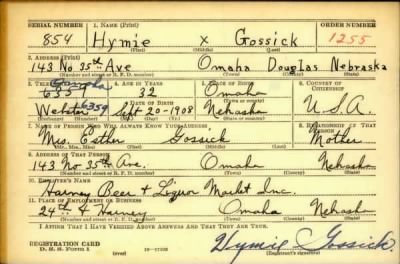 SERIAL NUMBER 1. NAME (Print) ORDER NUMBER
854 Hymie x Gossick 1255
(First) (Middle) (Last)
2. ADDRESS (Print)
143 No 35th Ave Omaha Douglas Nebraska
(Number and street or R. F. D. number) (Town) (County) (State)
3. TELEPHONE 4. AGE IN YEARS 5. PLACE OF BIRTH 6. COUNTRY OF CITIZENSHIP
32 Omaha
(Town or county)
Webster 6359 DATE OF BIRTH Sept 20 - 1908 Nebraska U.S.A.
(Exchange) (Number) (Mo.) (Day) (Yr.) (State or country)
7. NAME OF PERSON WHO WILL ALWAYS KNOW YOUR ADDRESS 8. RELATIONSHIP OF THAT PERSON
Mrs. Esther Gossick Mother
(Mr., Mrs., Miss) (First) (Middle) (Last)
9. ADDRESS OF THAT PERSON
143 No 35th Ave. Omaha Nebraska
(Number and street or R. F. D. number) (Town) (County) (State)
10. EMPLOYER'S NAME
Harney Beer + Liquor Market Inc.
11. PLACE OF EMPLOYMENT OR BUSINESS
24th & Harney Omaha Nebraska
(Number and street or R. F. D. number) (Town) (County) (State)
I AFFIRM THAT I HAVE VERIFIED ABOVE ANSWERS AND THAT THEY ARE TRUE.
REGISTRATION CARD
D. S. S. Form 1 (over) Hymie Gossick
(Registrant's signature)